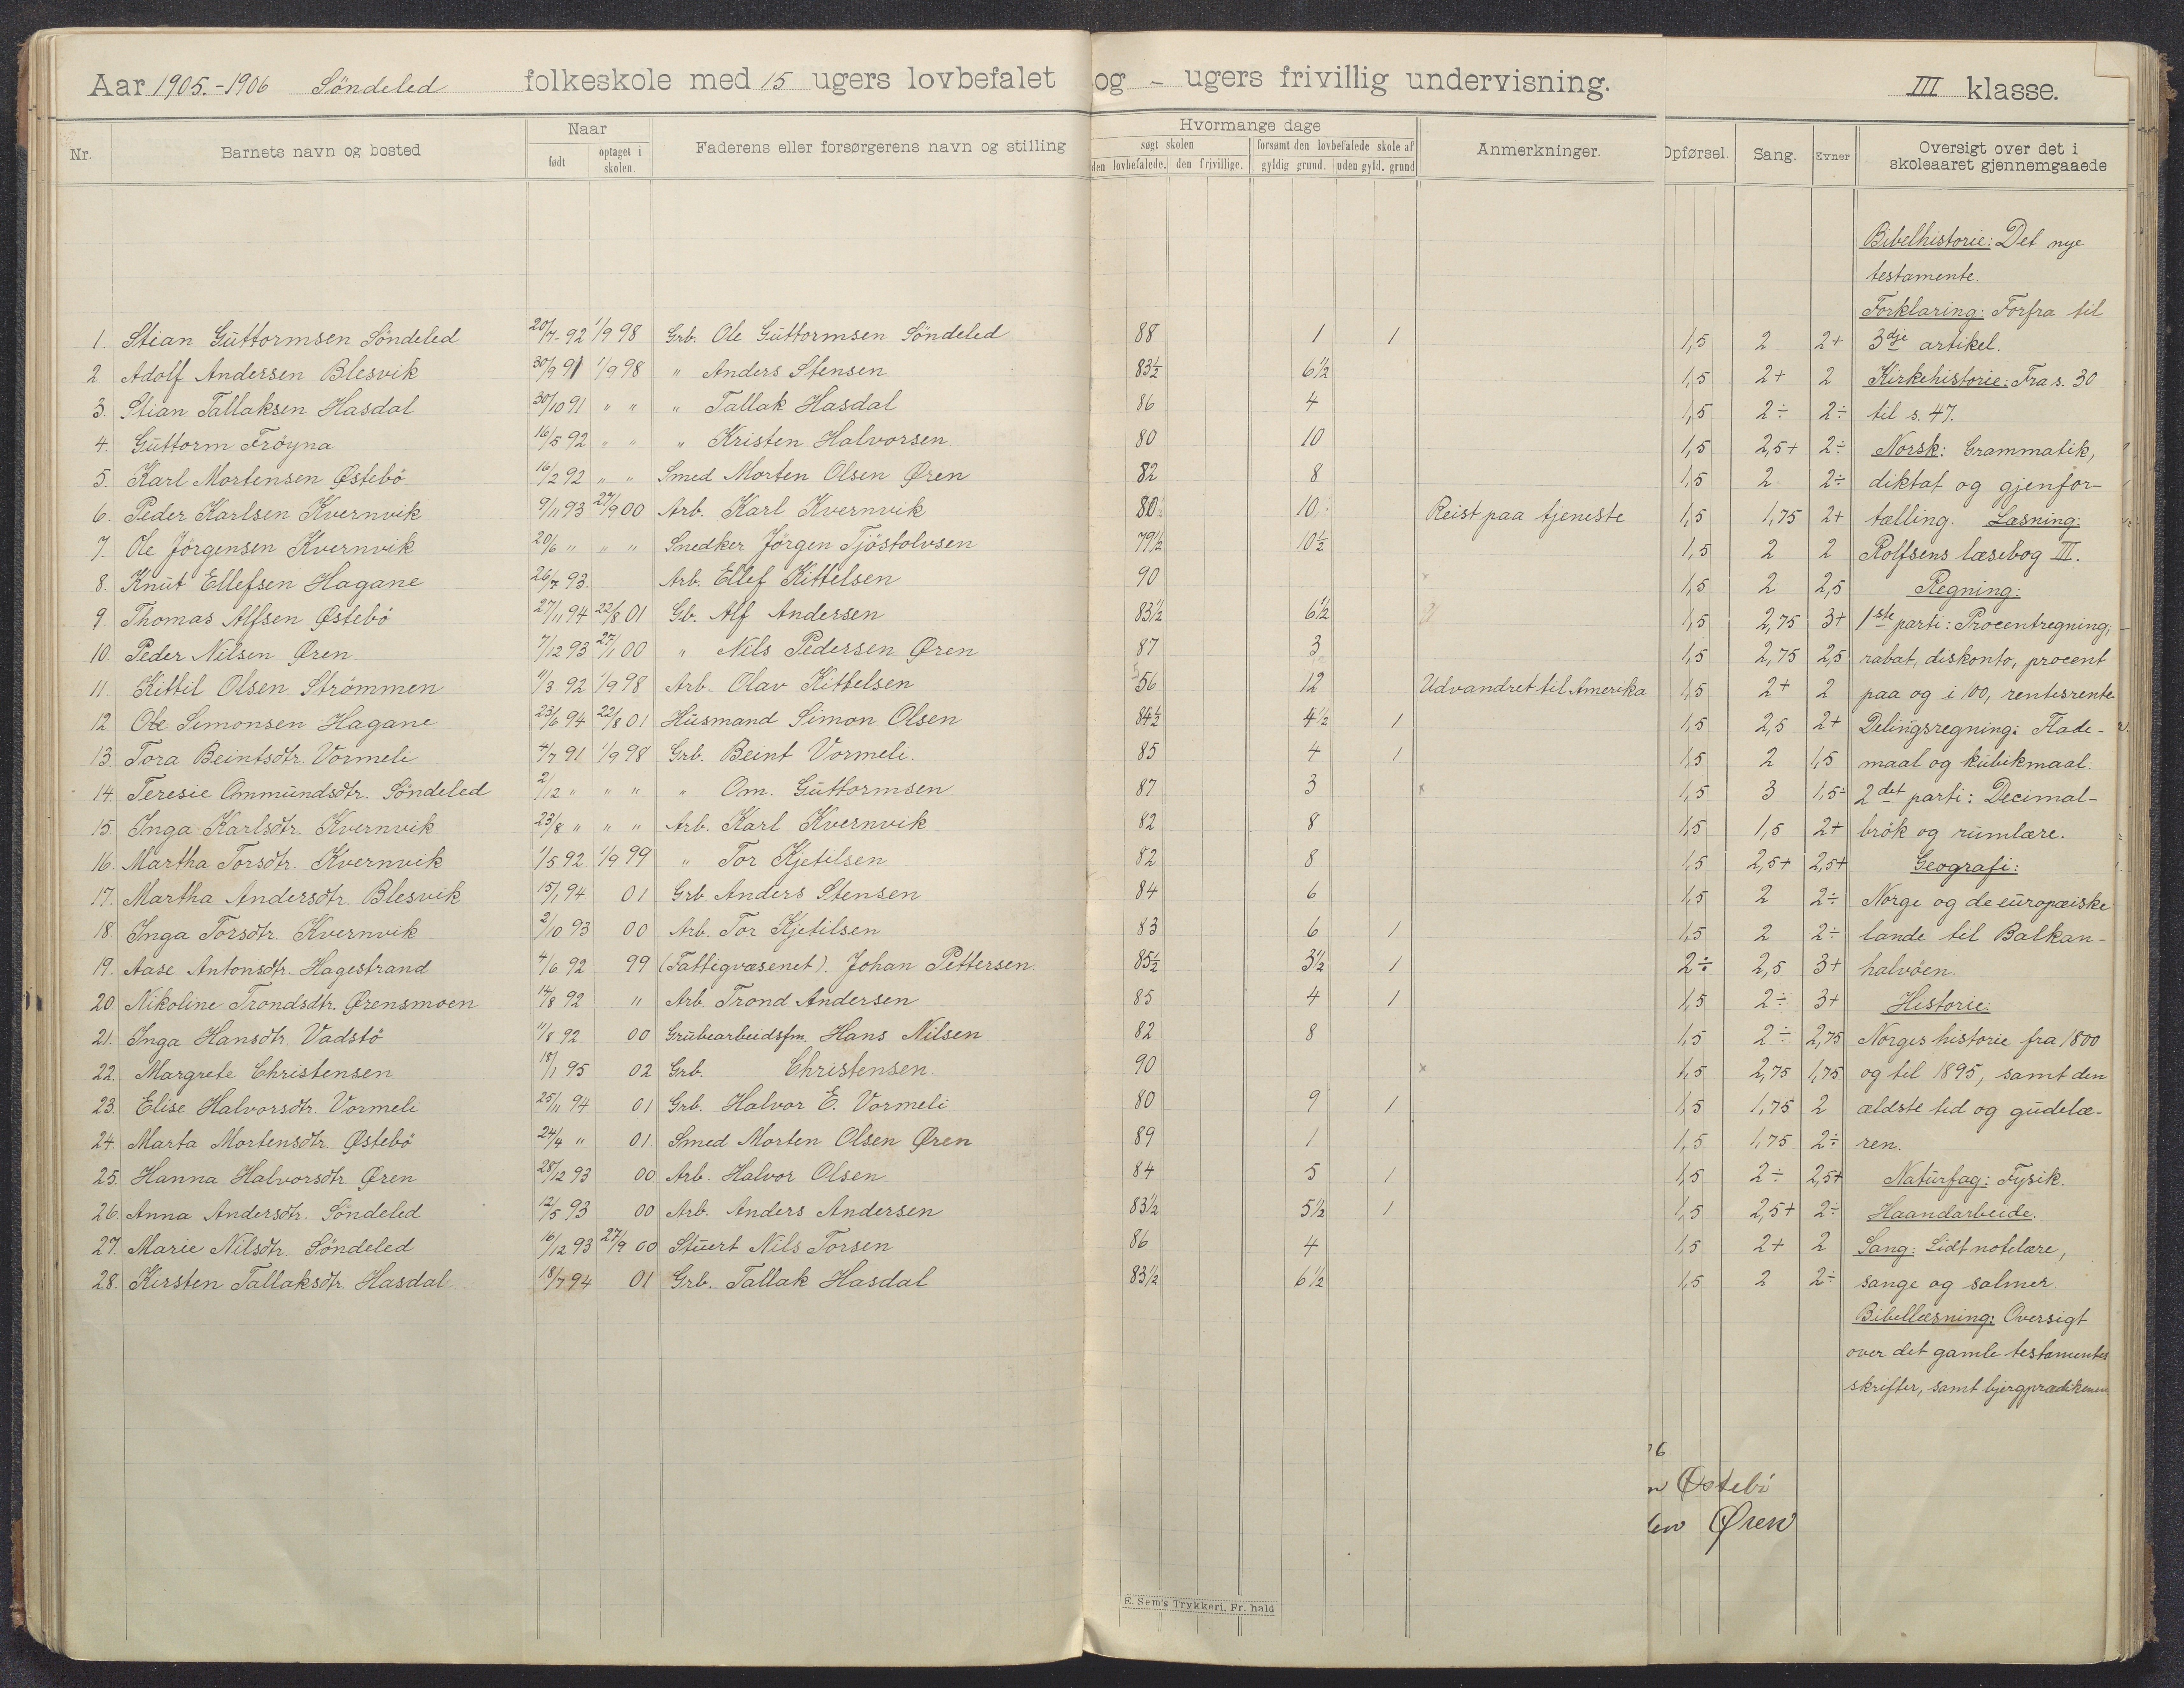 Aar 1905.-1906 Söndeled folkeskole med 15 ugers lovbefalet og - ugers frivillig undervisning. III klasse.
Nr. Barnets navn og bosted Naar født optaget i skolen. Faderens eller forsørgerens navn og stilling Hvormange dage søgt skolen den lovbefalede. den frivillige. forsømt den lovbefalede skole af gyldig grund. uden gyld. grund Anmerkninger. Opførsel. Sang. Evner Oversigt over det i skoleaaret gjennemgaaede
Bibelhistorie: Det nye
testamente.
Forklaring: Forfra til
1. Stian Guttormsen Söndeled 20/7-92 1/9 98 Grb. Ole Guttormsen Söndeled 88 1 1 1,5 2 2+ 3dje artikel.
2. Adolf Andersen Blesvik 30/9 91 1/9 98 " Anders Stensen 83½ 6½ 1,5 2+ 2 Kirkehistorie: Fra s. 30
3. Stian Tallaksen Hasdal 30/10 91 " " " Tallak Hasdal 86 4 1,5 2÷ 2÷ til s. 47.
4. Guttorm Fröyna 16/5 92 " " " Kristen Halvorsen 80 10 1,5 2,5+ 2÷ Norsk: Grammatik,
5. Karl Mortensen Østebö 16/2 92 " " Smed Morten Olsen Øren 82 8 1,5 2 2÷ diktat og gjenfor-
6. Peder Karlsen Kvernvik 9/11 93 27/9 00 Arb. Karl Kvernvik 80 10 Reist paa tjeneste 1,5 1,75 2+ tælling. Læsning:
7. Ole Jörgensen Kvernvik 20/6 " " " Snedker Jörgen Tjöstolvsen 79½ 10½ 1,5 2 2 Rolfsens læsebog III.
8. Knut Ellefsen Hagane 26/7 93. Arb. Ellef Kittelsen 90 x 1,5 2 2,5 Regning:
9. Thomas Alfsen Østebö 27/11 94 22/8 01 Gb. Alf Andersen 83½ 6½ 1,5 2,75 3+ 1ste parti: Procentregning;
10. Peder Nilsen Øren 7/12 93 27/1 00 " Nils Pedersen Øren 87 3 1,5 2,75 2,5 rabat, diskonto, procent
11. Kittil Olsen Strömmen 11/3 92 1/9 98 Arb. Olav Kittelsen 56 12 Udvandret til Amerika 1,5 2+ 2 paa og i 100, rentesrente
12. Ole Simonsen Hagane 23/6 94 22/8 01 Husmand Simon Olsen 84½ 4½ 1 1,5 2,5 2+ Delingsregning: Flade-
13. Tora Beintsdtr. Vormeli 4/7 91 1/9 98 Grb. Beint Vormeli. 85 4 1 1,5 2 1,5 maal og kubikmaal.
14. Teresie Ommundsdtr. Söndeled 2/12 " " " " Om. Guttormsen 87 3 x 1,5 3 1,5÷ 2det parti: Decimal-
15. Inga Karlsdtr. Kvernvik 23/8 " " " Arb. Karl Kvernvik 82 8 1,5 1,5 2+ brök og rumlære.
16. Martha Torsdtr. Kvernvik 1/5 92 1/9 99 " Tor Kjetilsen 82 8 1,5 2,5+ 2,5+ Geografi:
17. Martha Andersdtr. Blesvik 15/1 94 01 Grb. Anders Stensen 84 6 1,5 2 2÷ Norge og de europæiske
18. Inga Torsdtr. Kvernvik 2/10 93 00 Arb. Tor Kjetilsen 83 6 1 1,5 2 2÷ lande til Balkan-
19. Aase Antonsdtr. Hagestrand 4/6 92 99 (Fattigvæsenet). Johan Pettersen 85½ 3½ 1 2÷ 2,5 3+ halvöen.
20. Nikoline Trondsdtr. Ørensmoen 14/8 92 " Arb. Trond Andersen 85 4 1 1,5 2÷ 3+ Historie:
21. Inga Hansdtr. Vadstö 11/8 92 00 Grubearbeidsfm. Hans Nilsen 82 8 1,5 2÷ 2,75 Norges historie fra 1800
22. Margrete Christensen 18/1 95 02 Grb. Christensen 90 x 1,5 2,75 1,75 og til 1895, samt den
23. Elise Halvorsdtr. Vormeli 25/11 94 01 Grb. Halvor E. Vormeli 80 9 1 1,5 1,75 2 ældste tid og gudelæ-
24. Marta Mortensdtr. Østebö 24/4 " 01 Smed Morten Olsen Øren 89 1 1,5 1,75 2÷ ren.
25. Hanna Halvorsdtr. Øren 28/12 93 00 Arb. Halvor Olsen 84 5 1 1,5 2÷ 2,5+ Naturfag: Fysik.
26. Anna Andersdtr. Söndeled 12/5 93 00 Arb. Anders Andersen 83½ 5½ 1 1,5 2,5+ 2÷ Haandarbeide.
27. Marie Nilsdtr. Söndeled 16/12 93 27/9 00 Stuert Nils Torsen 86 4 1,5 2+ 2 Sang: Lidt notelære,
28. Kirsten Tallaksdtr. Hasdal 18/7 94 01 Grb. Tallak Hasdal 83½ 6½ 1,5 2 2÷ sange og salmer.
Bibellæsning: Oversigt
over det gamle testamentes
skrifter, samt bjergprædikenen
Østebö
Øren
E. Sem's Trykkeri, Fr. hald